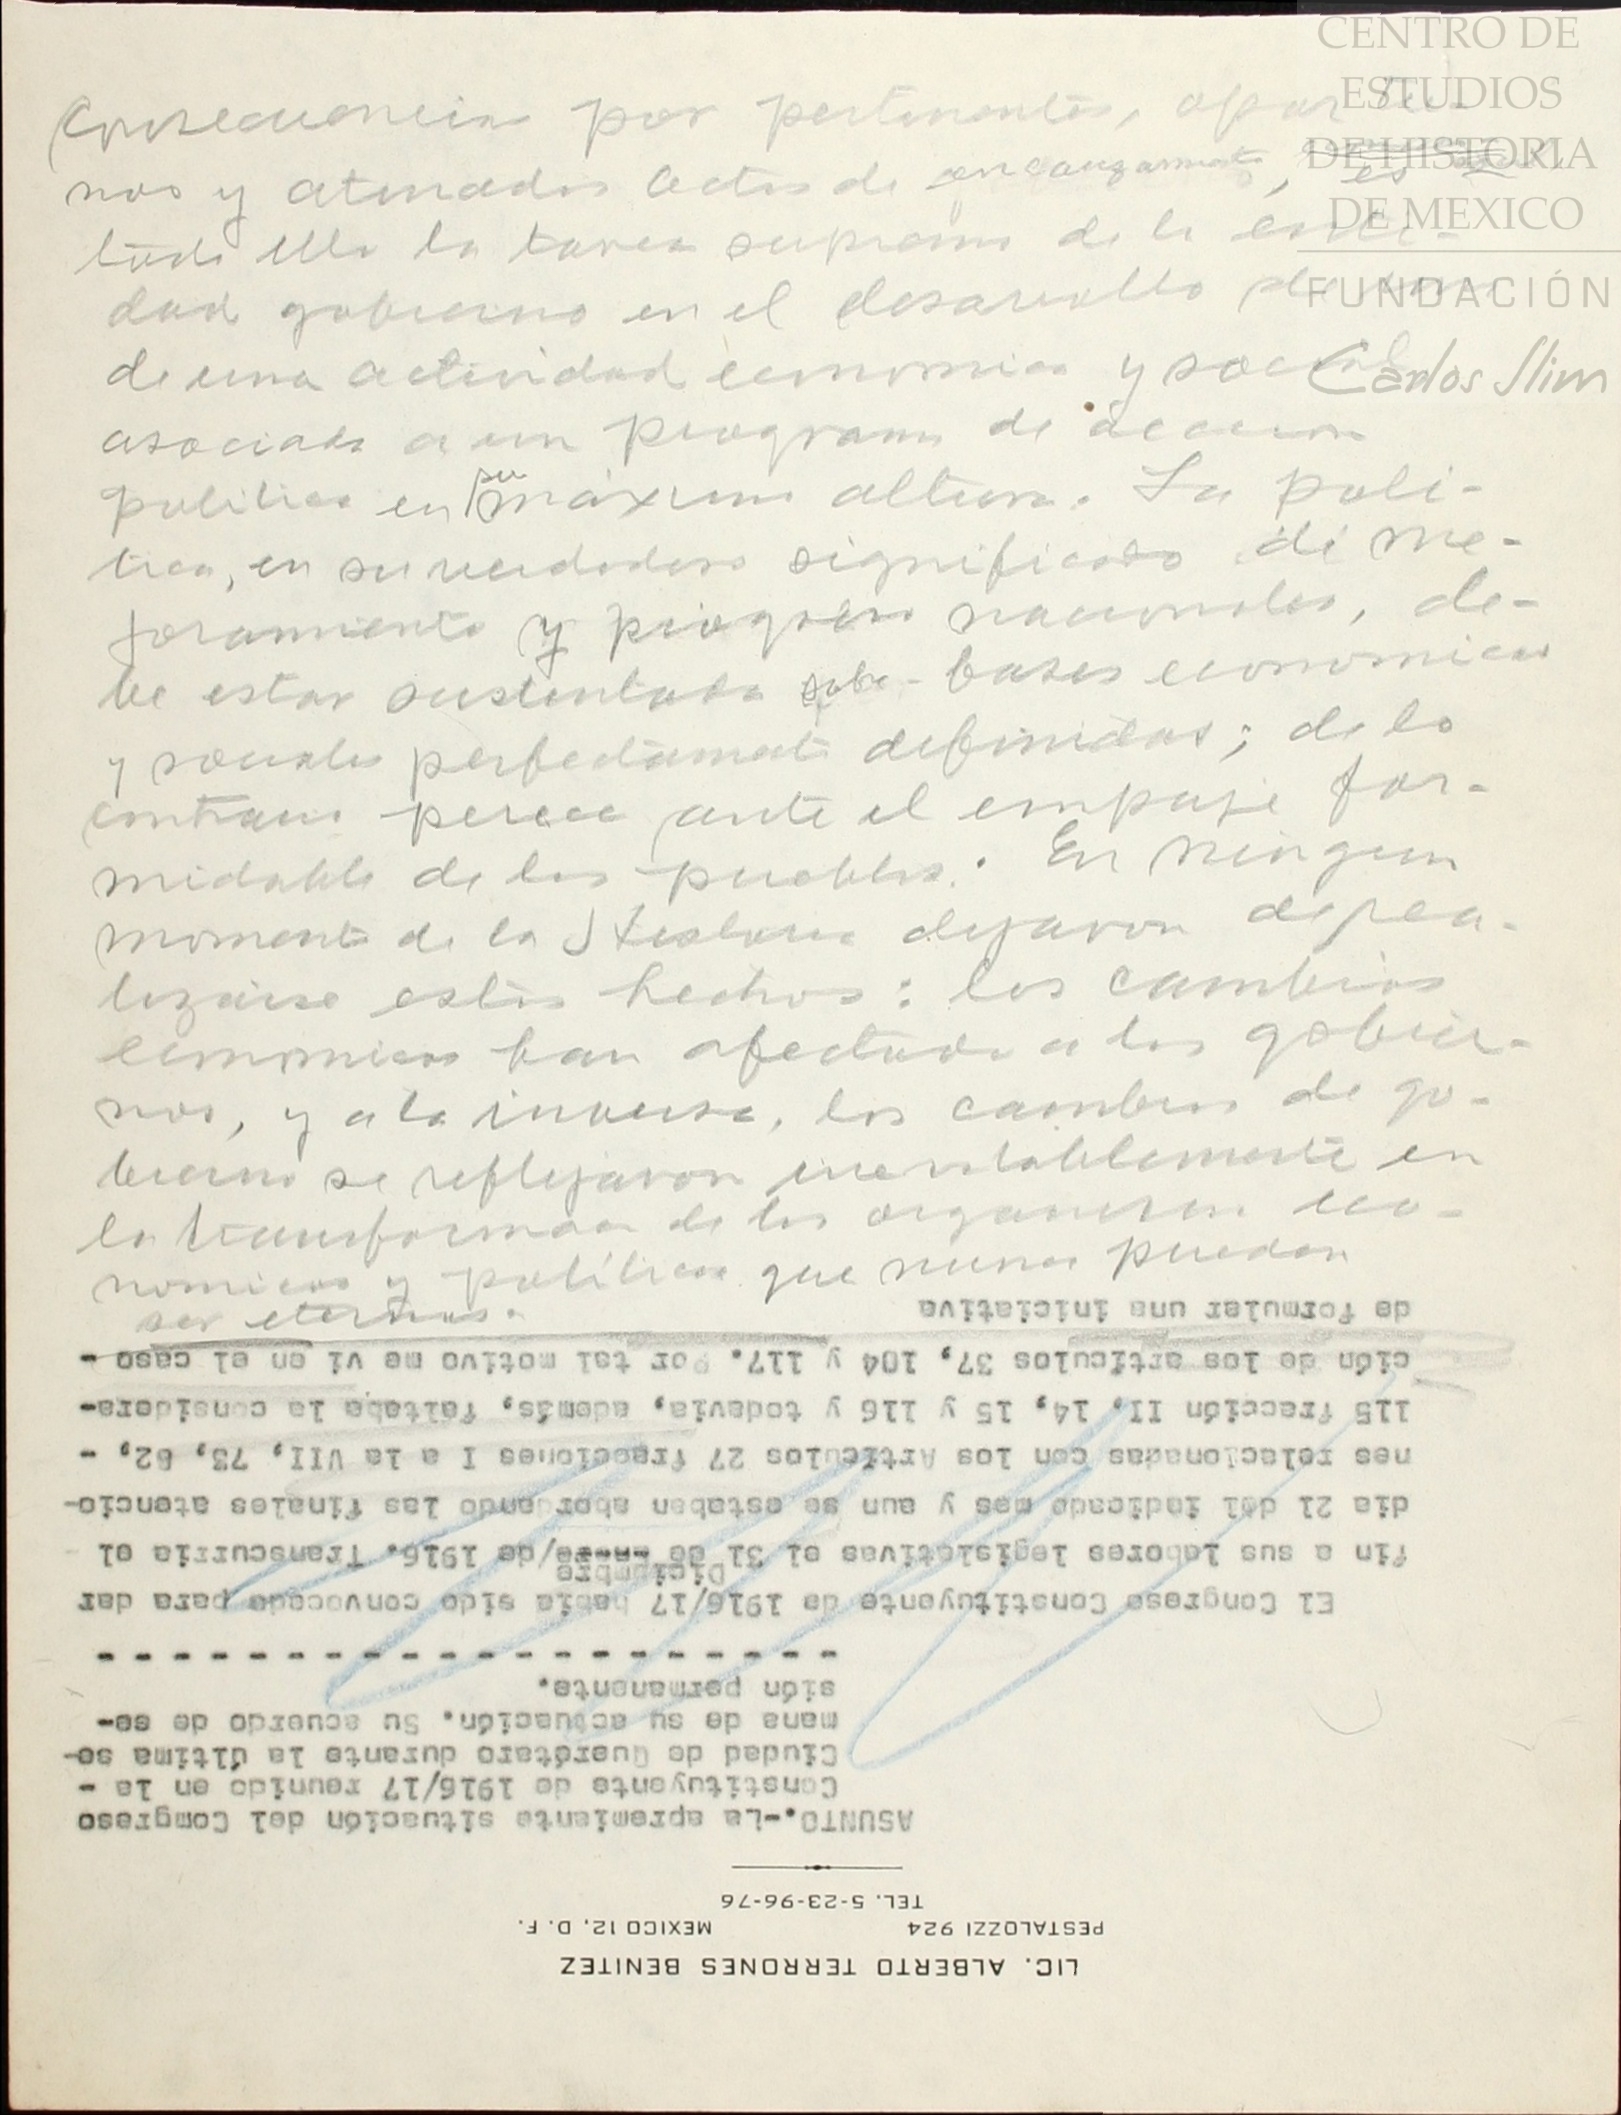 CENTRO DE
ESTUDIOS
DE HISTORIA
DE MEXICO
FUNDACIÓN
Carlos Slim
Consecuencia por pertinentes, oportu-
nos y atinados actos de encauzamiento,
todo ello la tarea suprema de la enti-
dad gobierno en el desarrollo
de una actividad economica y social
asociada a un programa de accion
politica en su máxima altura. La poli-
tica, en su verdadero significado de me-
joramiento y progreso nacionales, de-
be estar sustentada sobre bases economicas
y sociales perfectamente definidas; de lo
contrario perece ante el empuje for-
midable de los pueblos. En ningun
momento de la Historia dejaron de rea-
lizarse estos hechos: los cambios
economicos han afectado a los gobier-
nos, y a la inversa, los cambios de go-
bierno se reflejaron inevitablemente en
la transformacion de los organismos eco-
nomicos y politicos que nunca puedan
ser eternos.
LIC. ALBERTO TERRONES BENITEZ
PESTALOZZI 924 MEXICO 12, D. F.
TEL. 5-23-96-76
ASUNTO.-La apremiente situación del Comgreso
Constituyente de 1916/17 reunido en la -
Ciudad de Querétaro durante la última se-
mana de su actuación. Su acuerdo de se-
sión permanente.
- - - - - - - - - - - - - - - - - - - -
El Congreso Constituyente de 1916/17 había sido convocado para dar
Diciembre
fin a sus labores legislativas el 31 de enero/de 1916. Transcurría el
dia 21 del indicado mes y aun se estaban abordando las finales atencio-
nes relacionadas con los Artículos 27 fracciones I a la VII, 73, 82, -
115 fracción II, 14, 15 y 116 y todavía, además, faltaba la considera-
ción de los artículos 37, 104 y 117. Por tal motivo me vi en el caso -
de formular una iniciativa